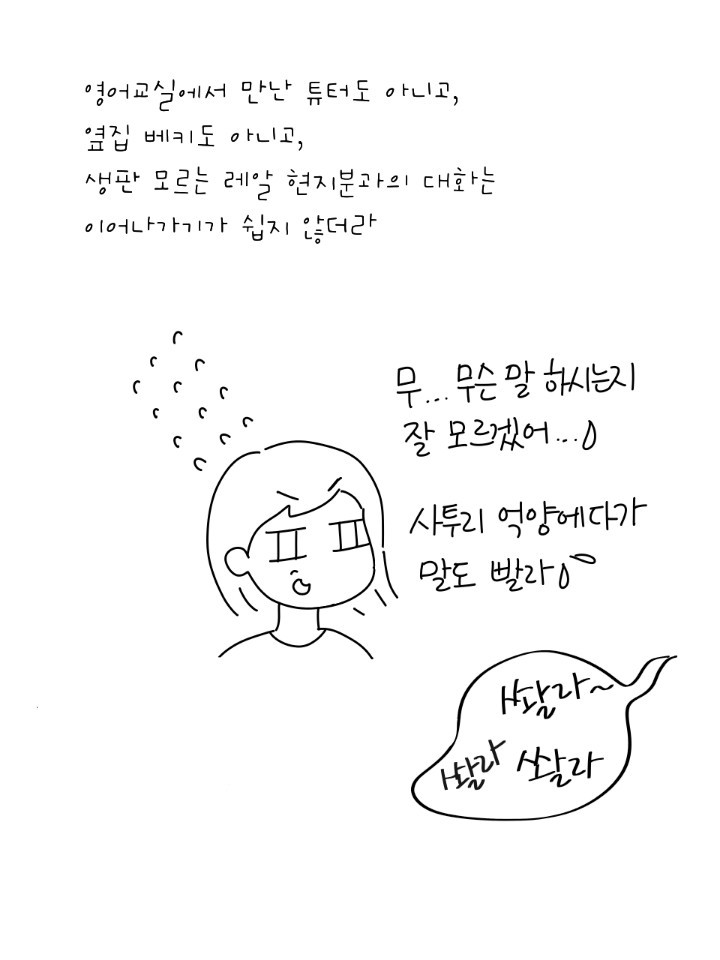 영어교실에서 만난 튜터도 아니고,
옆집 베키도 아니고,
생판 모르는 레알 현지분과의 대화는
이어나가기가 쉽지 않더라
무... 무슨 말 하시는지
잘 모르겠어...
사투리 억양에다가
말도 빨라
쏼라~
쏼라 쏼라